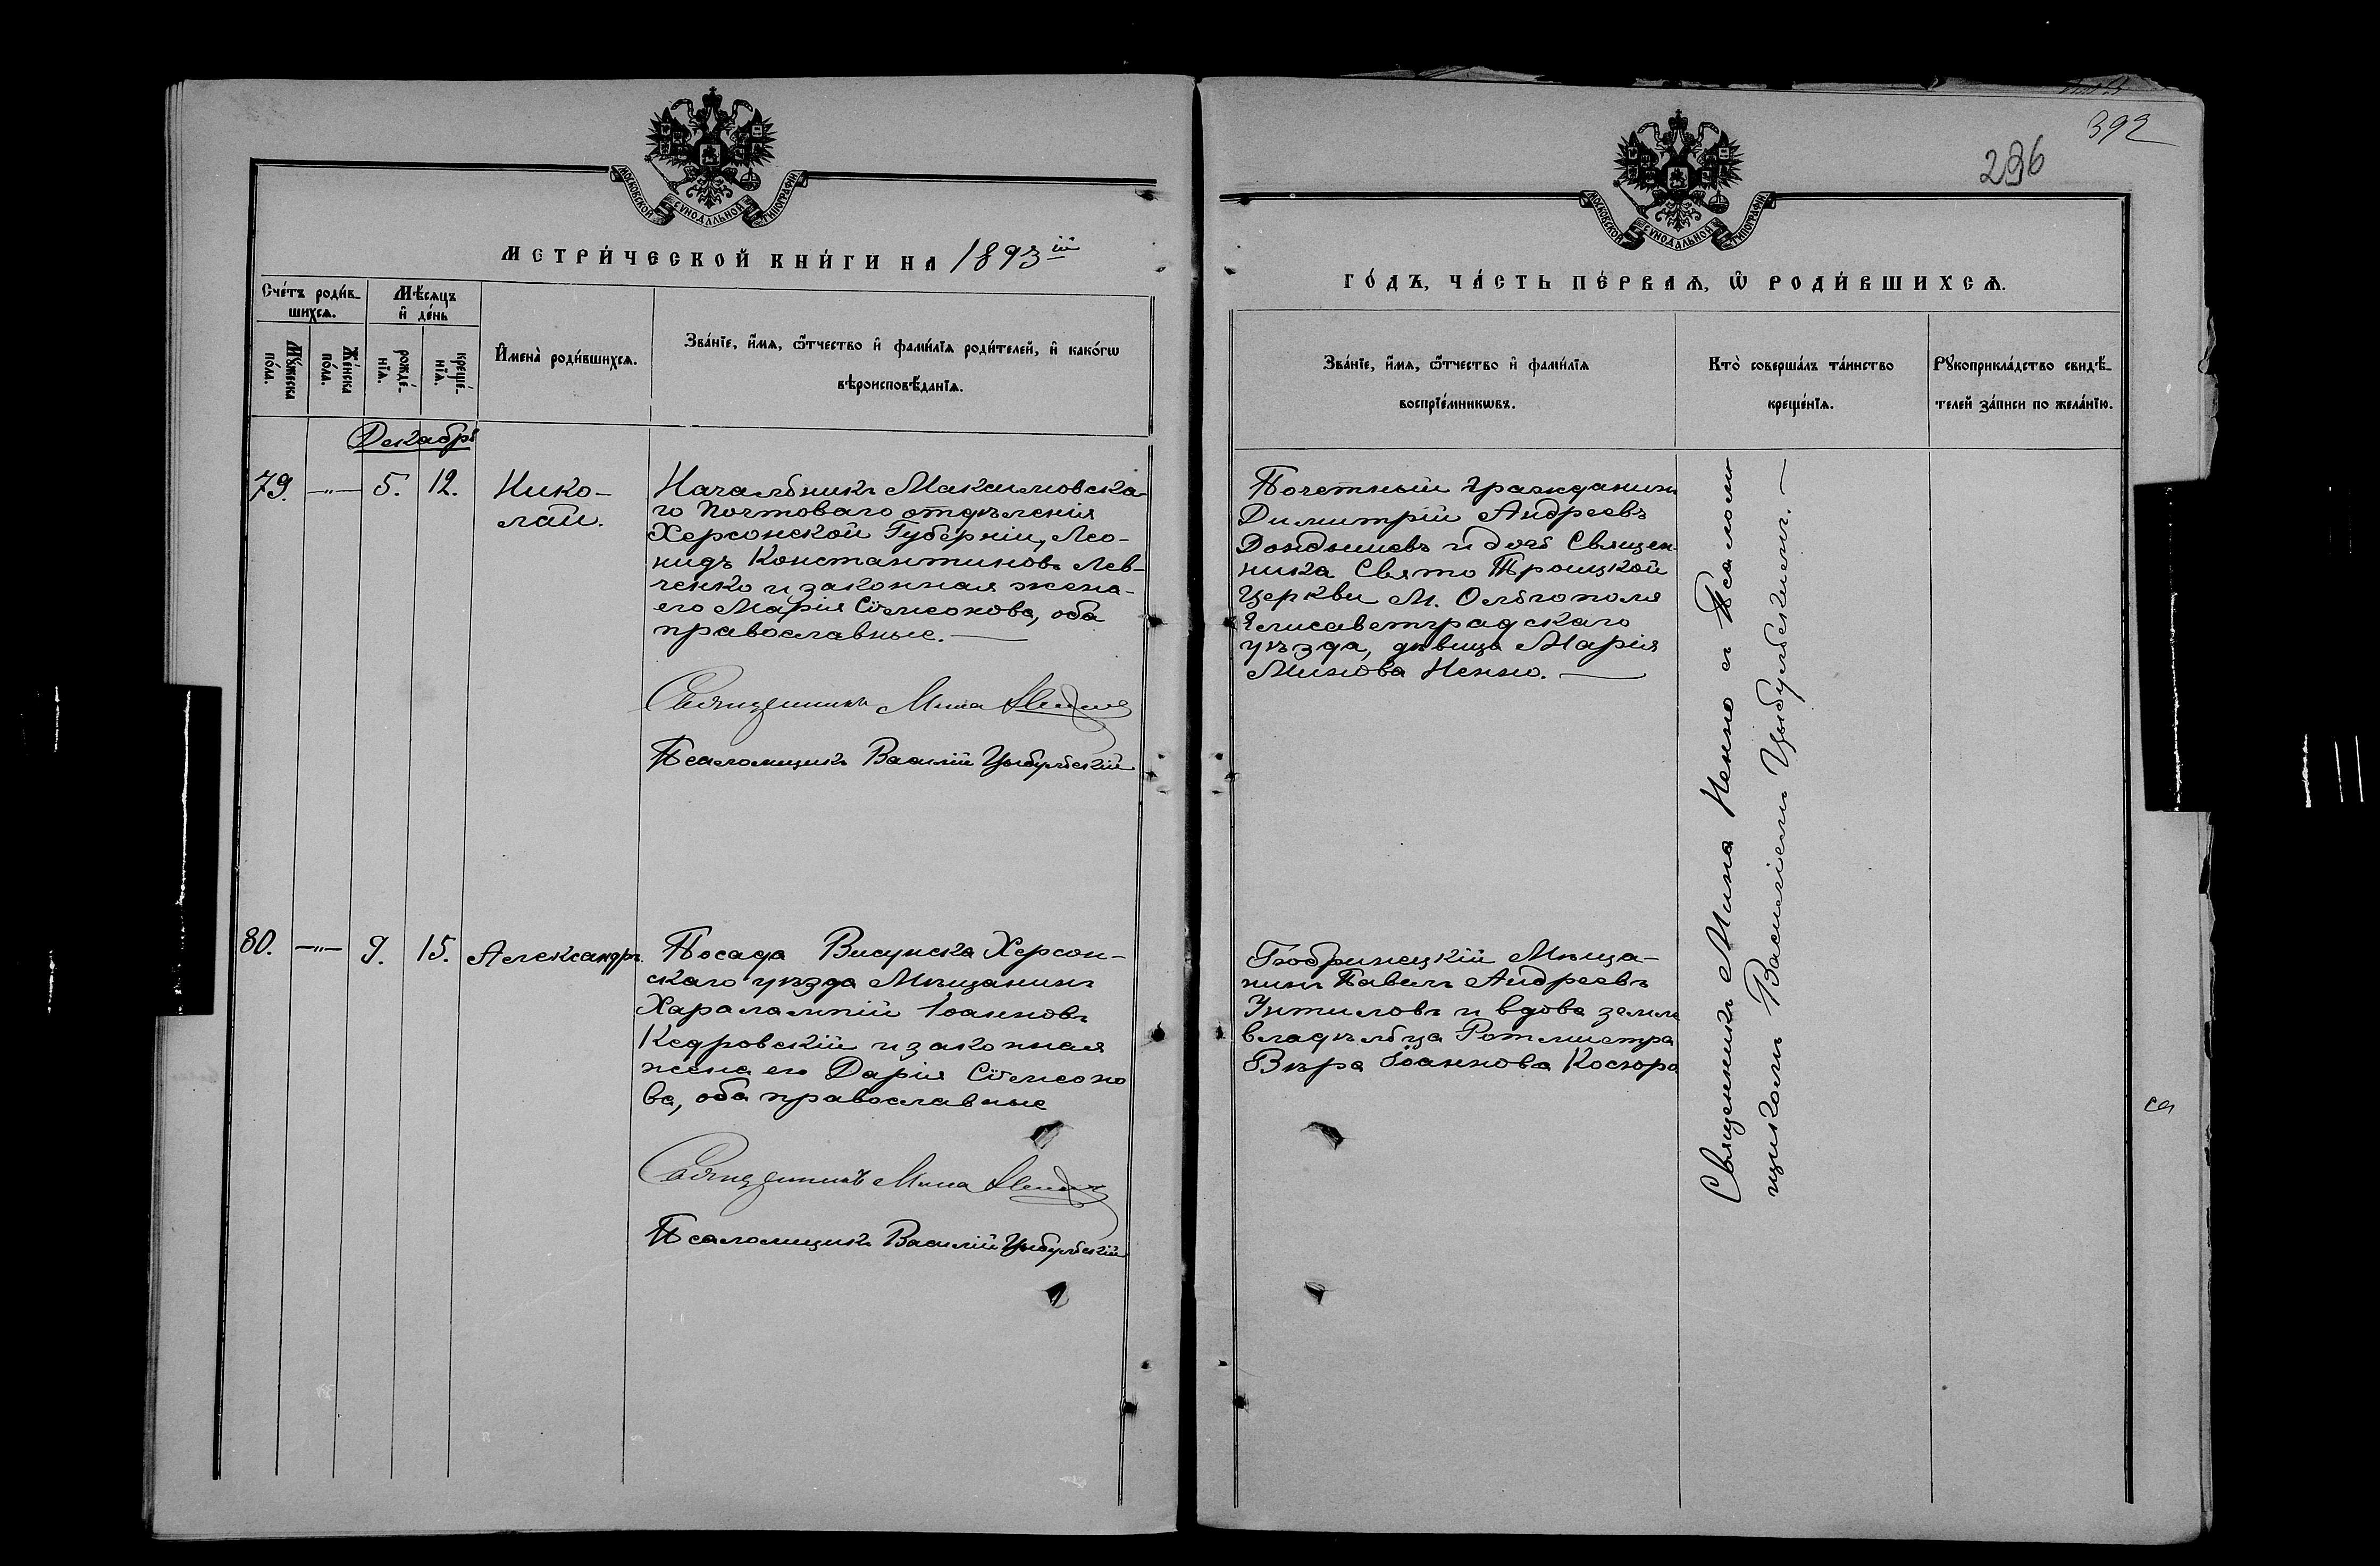 МОСКОВСКОЙ СѴНОДАЛЬНОЙ ТИПОГРАФІИ
МЕТРИ́ЧЕСКОЙ КНИ́ГИ НА 1893й
Сче́тъ роди́в-
шихсѧ.
Мѣ́сѧцъ
и҆ де́нь
Мꙋ́жеска
по́ла.
Же́нска
по́ла.
рожде́-
нїѧ.
креще́-
нїѧ.
И҆мена̀ роди́вшихсѧ.
Зва́нїе, и҆́мѧ, ѻ҆́тчество и҆ фами́лїѧ роди́телей, и҆ како́гѡ
вѣроисповѣ́данїѧ.
Декабрь
79. —„— 5. 12.
Нико-
лай.
Начальникъ Максимовска-
го Почтоваго отдѣленія
Херсонской Губерніи, Лео-
нидъ Константиновъ Лев-
ченко и законная жена
его Марія Сѵмеонова, оба
православные. —
Священникъ Мина Ненно
Псаломщикъ Василій Цыбульскій
80. —„— 9. 15. Александръ.
Посада Висунска Херсон-
скаго уѣзда Мѣщанинъ
Харалампій Іоанновъ
Кедровскій и законная
жена его Дарія Сѵмеоно
ва, оба православные
Священникъ Мина Ненно
Псаломщикъ Василій Цыбульскій
392
236
МОСКОВСКОЙ СѴНОДАЛЬНОЙ ТИПОГРАФІИ
ГО́ДЪ, ЧА́СТЬ ПЕ́РВАѦ, Ѡ҆ РОДИ́ВШИХСѦ.
Зва́нїе, и҆́мѧ, ѻ҆́тчество и҆ фами́лїѧ
воспрїе́мникѡвъ.
Кто̀ соверша́лъ та́инство
креще́нїѧ.
Рꙋкоприкла́дство свидѣ́-
телей за́писи по жела́нїю.
Почетный гражданинъ
Димитрій Андреевъ
и дочь Священ-
ника Свято Троицкой
Церкви М. Ольгополя
Елисаветградскаго
уѣзда, дѣвица Марія
Минова Ненно. —
Бобринецкій Мѣща-
нинъ Павелъ Андреевъ
и вдова земле
владѣльца Ротмистра
Вѣра Іоаннова Косюра
Священникъ Мина Ненно съ Псалом
щикомъ Василіемъ Цыбульскимъ. —